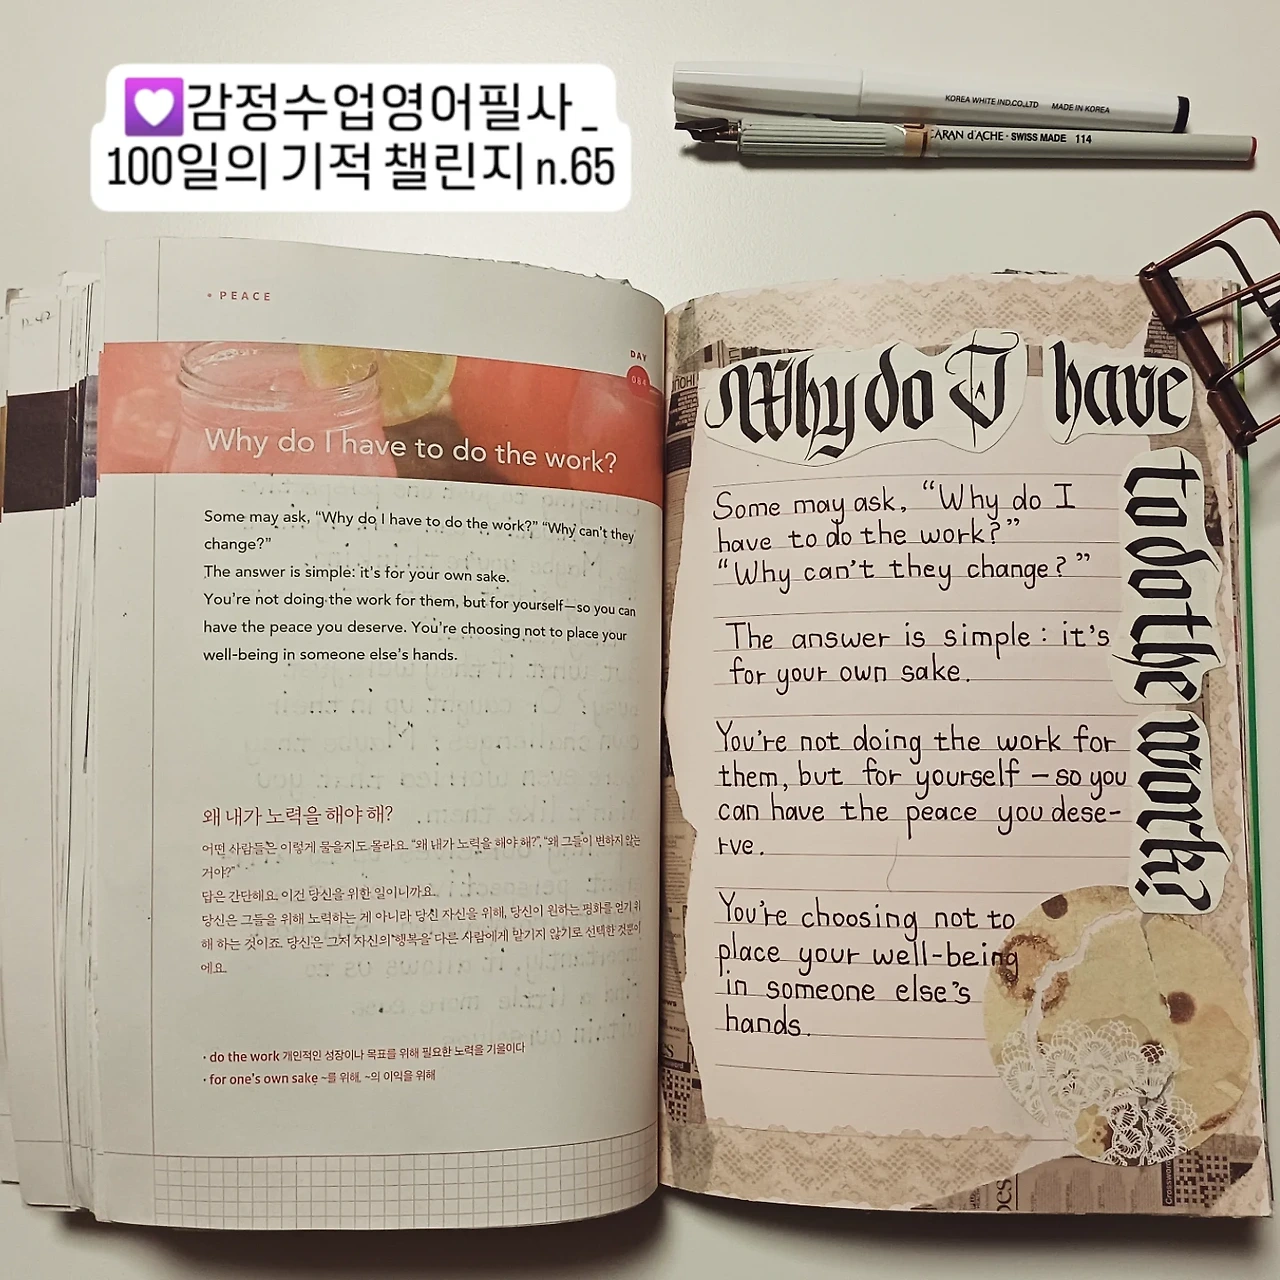 💟감정수업영어필사_
100일의 기적 챌린지 n.65
KOREA WHITE IND.CO.,LTD MADE IN KOREA
CARAN d'ACHE · SWISS MADE 114
n.42
• PEACE
DAY
084
Why do I have to do the work?
Some may ask, “Why do I have to do the work?” “Why can't they
change?”
The answer is simple: it's for your own sake.
You're not doing the work for them, but for yourself—so you can
have the peace you deserve. You're choosing not to place your
well-being in someone else's hands.
왜 내가 노력을 해야 해?
어떤 사람들은 이렇게 물을지도 몰라요. “왜 내가 노력을 해야 해?”, “왜 그들이 변하지 않는
거야?”
답은 간단해요. 이건 당신을 위한 일이니까요.
당신은 그들을 위해 노력하는 게 아니라 당신 자신을 위해, 당신이 원하는 평화를 얻기 위
해 하는 것이죠. 당신은 그저 자신의 행복을 다른 사람에게 맡기지 않기로 선택한 것뿐이
에요.
· do the work 개인적인 성장이나 목표를 위해 필요한 노력을 기울이다
· for one's own sake ~를 위해, ~의 이익을 위해
Why do I have
to do the work?
Some may ask, “Why do I
have to do the work?”
“Why can't they change?”
The answer is simple: it's
for your own sake.
You're not doing the work for
them, but for yourself – so you
can have the peace you dese-
rve.
You're choosing not to
place your well-being
in someone else's
hands.
Crossword